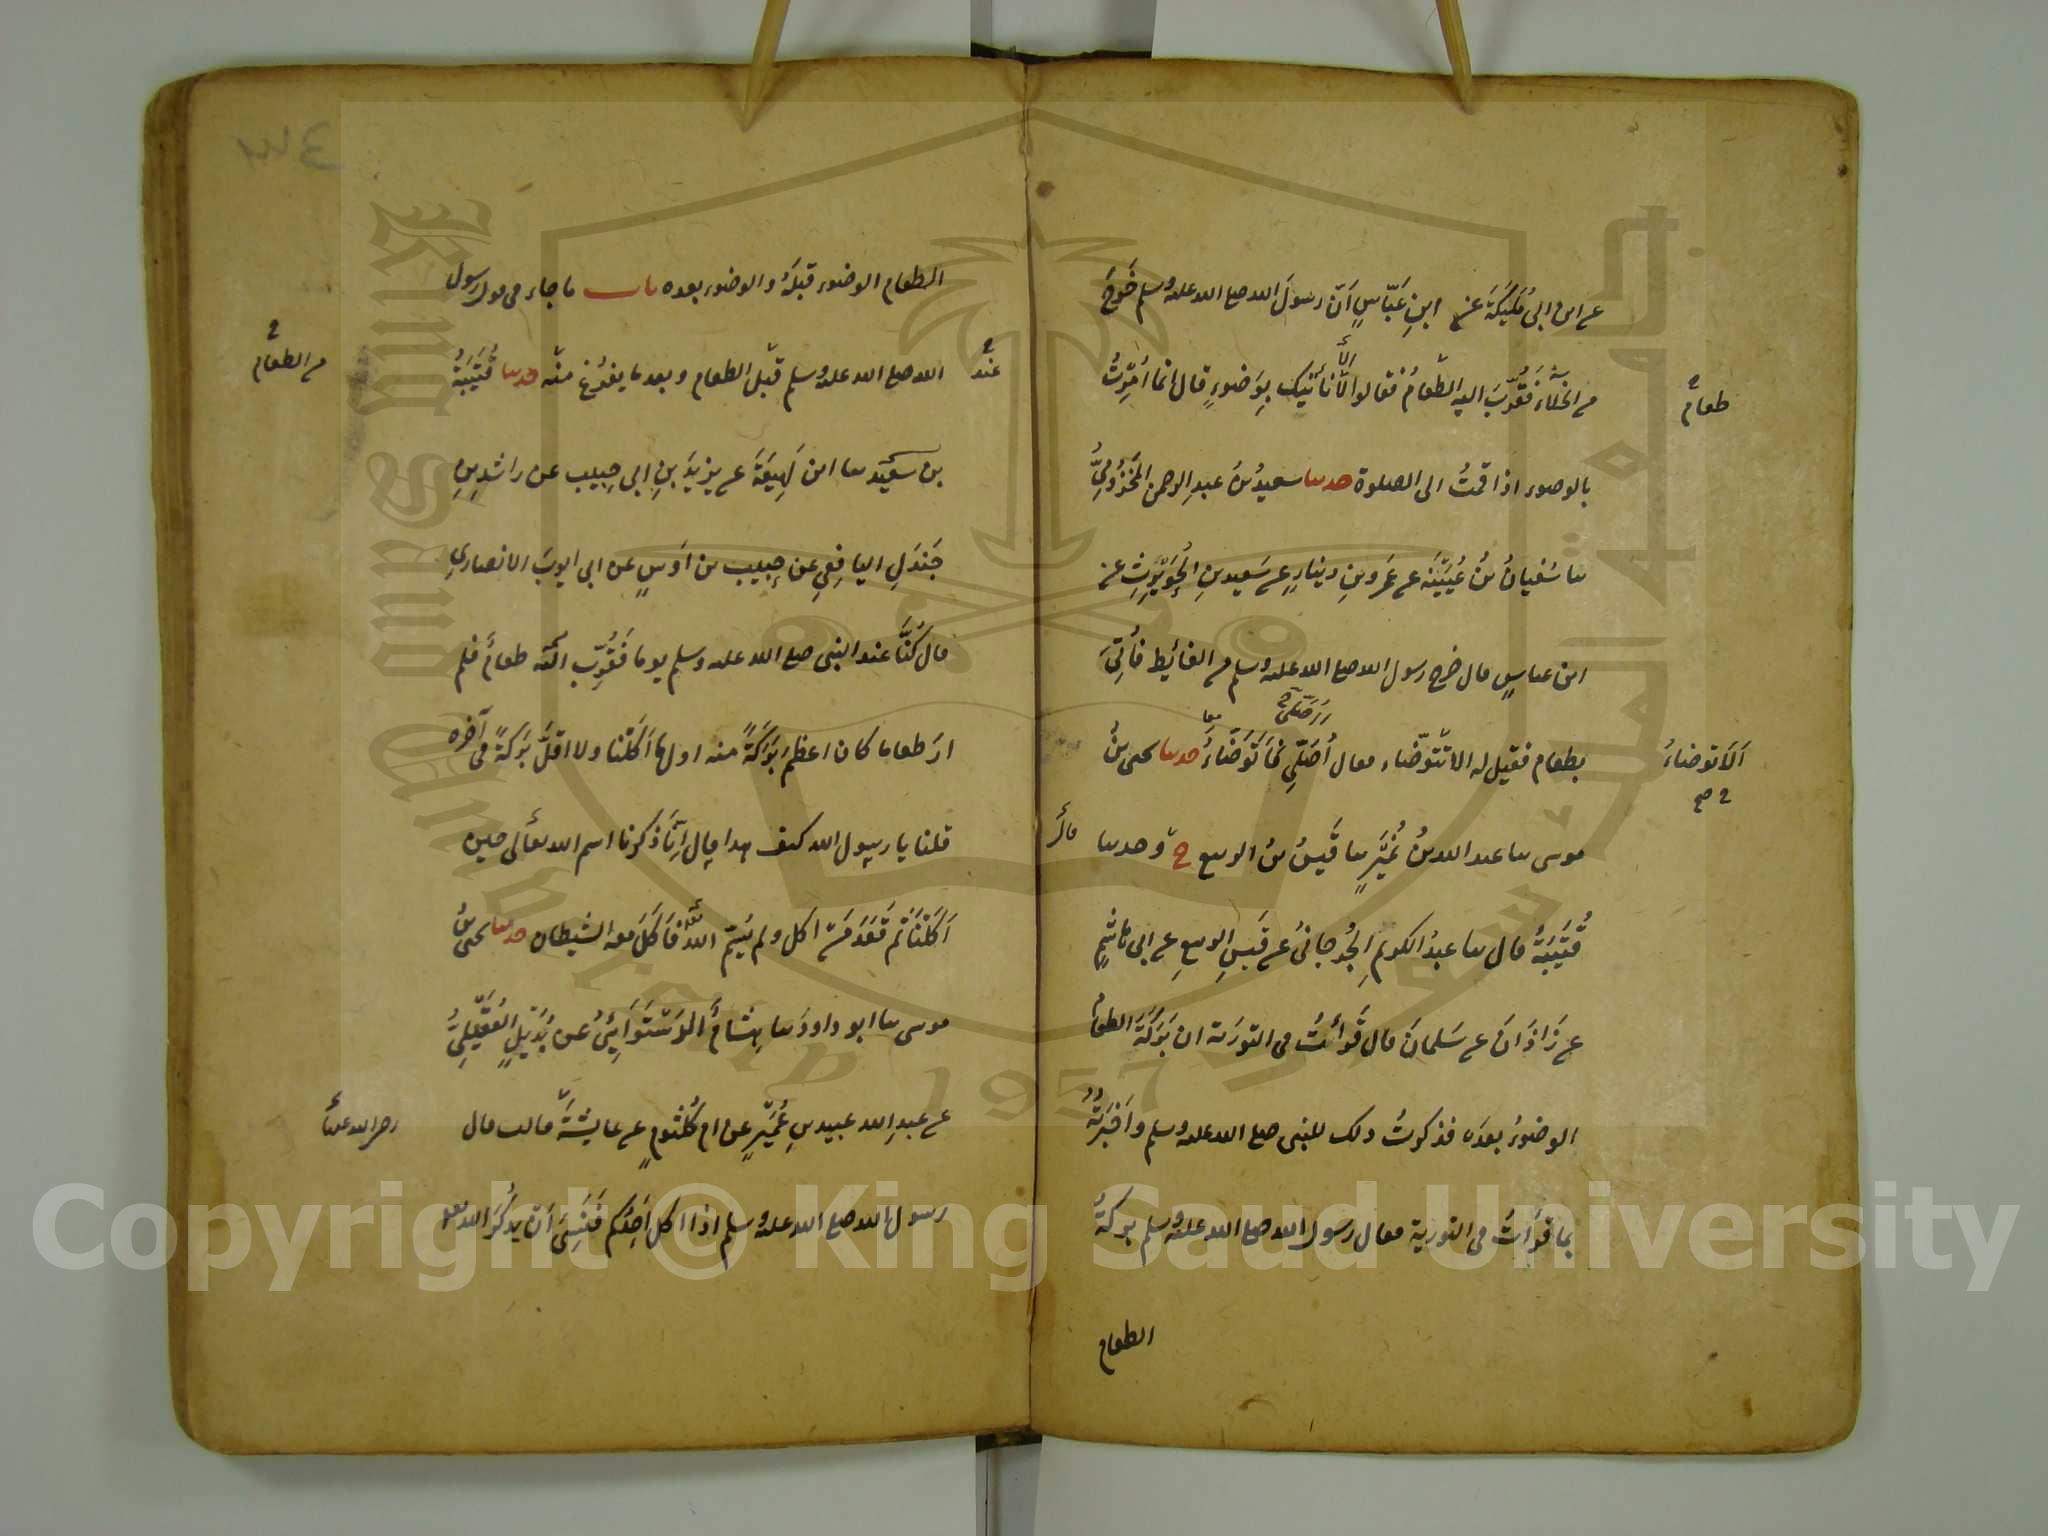 عن ابن ابى مُلَيْكَةَ عن ابنِ عَبّاسٍ اَنّ رسولَ الله صلى الله عليه وسلم خَرَجَ
من الخلآءِ فَقُرّبَ اليه الطّعامُ فقالوا الا نأتيك بِوَضوءٍ قال انما اُمِرْتُ
طعام
بالوضوء اذا قمتُ الى الصلوة حدثنا سعيدُ بنُ عبدِ الرحمن المَخْزُومِيُّ
ثنا سُفيانُ بنُ عُيَيْنَه عن عَمرو بنِ دينارٍ عن سَعيد بنِ الحُوَيْرِثِ عن
ابن عباسٍ قال خرج رسول الله صلى الله عليه وسلم من الغائِطِ فاُتِيَ
بطعام فقيل له الا تتوضّاء فقال أُصَلّي فَاَتَوَضّاءَُ حدثنا يحيى بنُ
اَلَا توضاءُ
موسى ثنا عبد الله بنُ نُمَيْرٍ ثنا قَيسُ بنُ الربيع ح وحدثنا
قال
قُتَيْبَةُ قال ثنا عبدُ الكريمِ الجُرجانىُ عن قَيسِ بن الربيعِ عن ابى هاشِمٍ
عن زَاذَانَ عن سَلمانَ قال قَرأتُ فى التورية ان بَرَكَةَ الطعام
الوضوءُ بعدَه فذكرتُ ذلك للنبى صلى الله عليه وسلم واَخْبَرْتُهُ
بما قرأتُ فى التورية فقال رسول الله صلى الله عليه وسلم بركةُ
الطعام
الطعام الوضوء قبلَهُ والوضوء بعده باب ما جاء فى قول رسول
الله صلى الله عليه وسلم قبْل الطعام وبعد ما يفرُغ منْه حدثنا قُتَيْبَةُ
عند
من الطعام
بن سعيْد ثنا ابن لَهِيعَةَ عن يزيدَ بنِ ابى حبيب عن راشدِ بنِ
جَندَلِ اليافِعِي عن حبيب بن اَوْسٍ عن ابى ايوبَ الانصاري
قال كُنَّا عند النبى صلى الله عليه وسلم يوما فَقُرِّب اليه طعامٌ فلم
ارَ طعاما كان اعظم بَرَكَةً منه اول ما اَكَلْنا ولا اقلَّ بَرَكةً فى آخره
قلنا يا رسول الله كيف هذا قال اِنّا ذَكرنا اسم الله تعالى حين
اَكَلْنا ثم قَعَدَ مَنْ اكل ولم يُسَمّ اللهَ تعالى فَاَكَلَ معه الشيطان حدثنا يحيى بنُ
موسى ثنا ابو داودَ ثنا هِشَامٌ الدَسْتَوَائِىُ عن بُدَيْلٍ العُقَيْلِيُّ
عن عبدِ الله عبيد بنِ عُمَيْرٍ عن ام كُلْثُومٍ عن عايشةَ قالت قال
رضى الله عنها
رسول الله صلى الله عليه وسلم اذا اكل اَحدُكم فَنَسِىَ اَن يذكُرَ الله تعالى
King Saud University
1957
Copyright © King Saud University